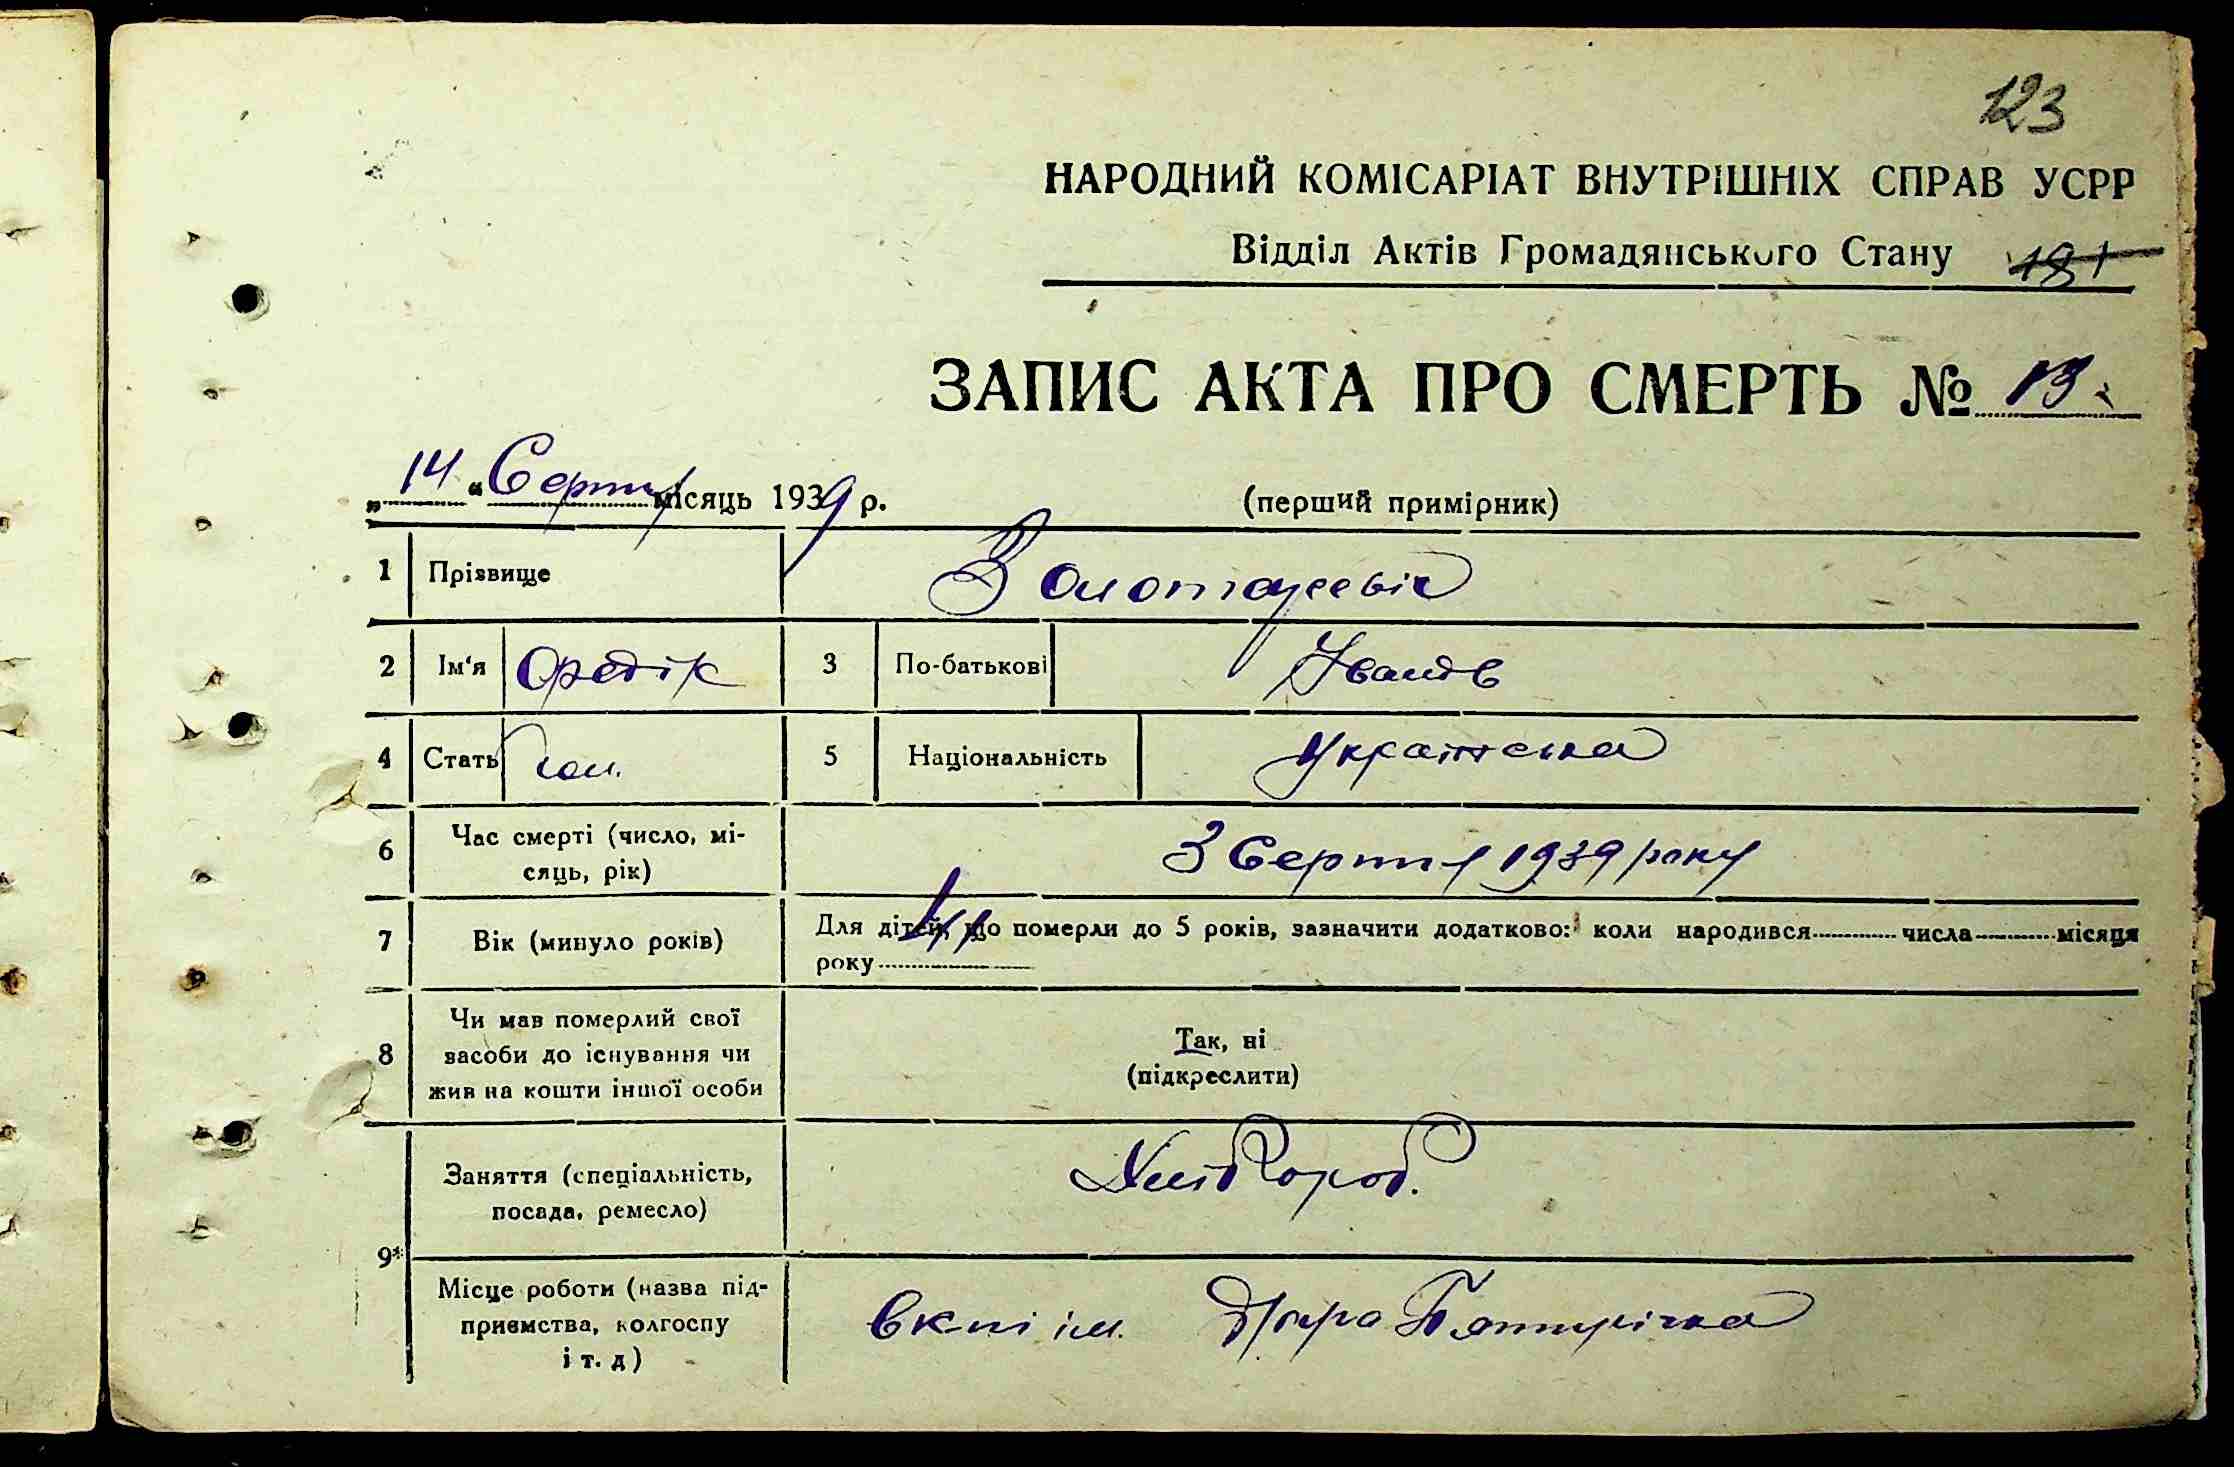 123
НАРОДНИЙ КОМІСАРІАТ ВНУТРІШНІХ СПРАВ УСРР
Відділ Актів Громадянського Стану 181
ЗАПИС АКТА ПРО СМЕРТЬ № 13
„14“ Серпня місяць 1939 р. (перший примірник)
1 Прізвище
2 Ім'я 3 По-батькові Іванів
4 Стать чол. 5 Національність Українська
6 Час смерті (число, мі-
сяць, рік) 3 Серпня 1939 року
7 Вік (минуло років) Для дітей, що померли до 5 років, зазначити додатково: коли народився числа місяця
року
8 Чи мав померлий свої
засоби до існування чи
жив на кошти іншої особи
Так, ні
(підкреслити)
9* Заняття (спеціальність,
посада, ремесло) Хлібороб.
Місце роботи (назва під-
приємства, колгоспу
і т. д) ім. Друга Пятирічка